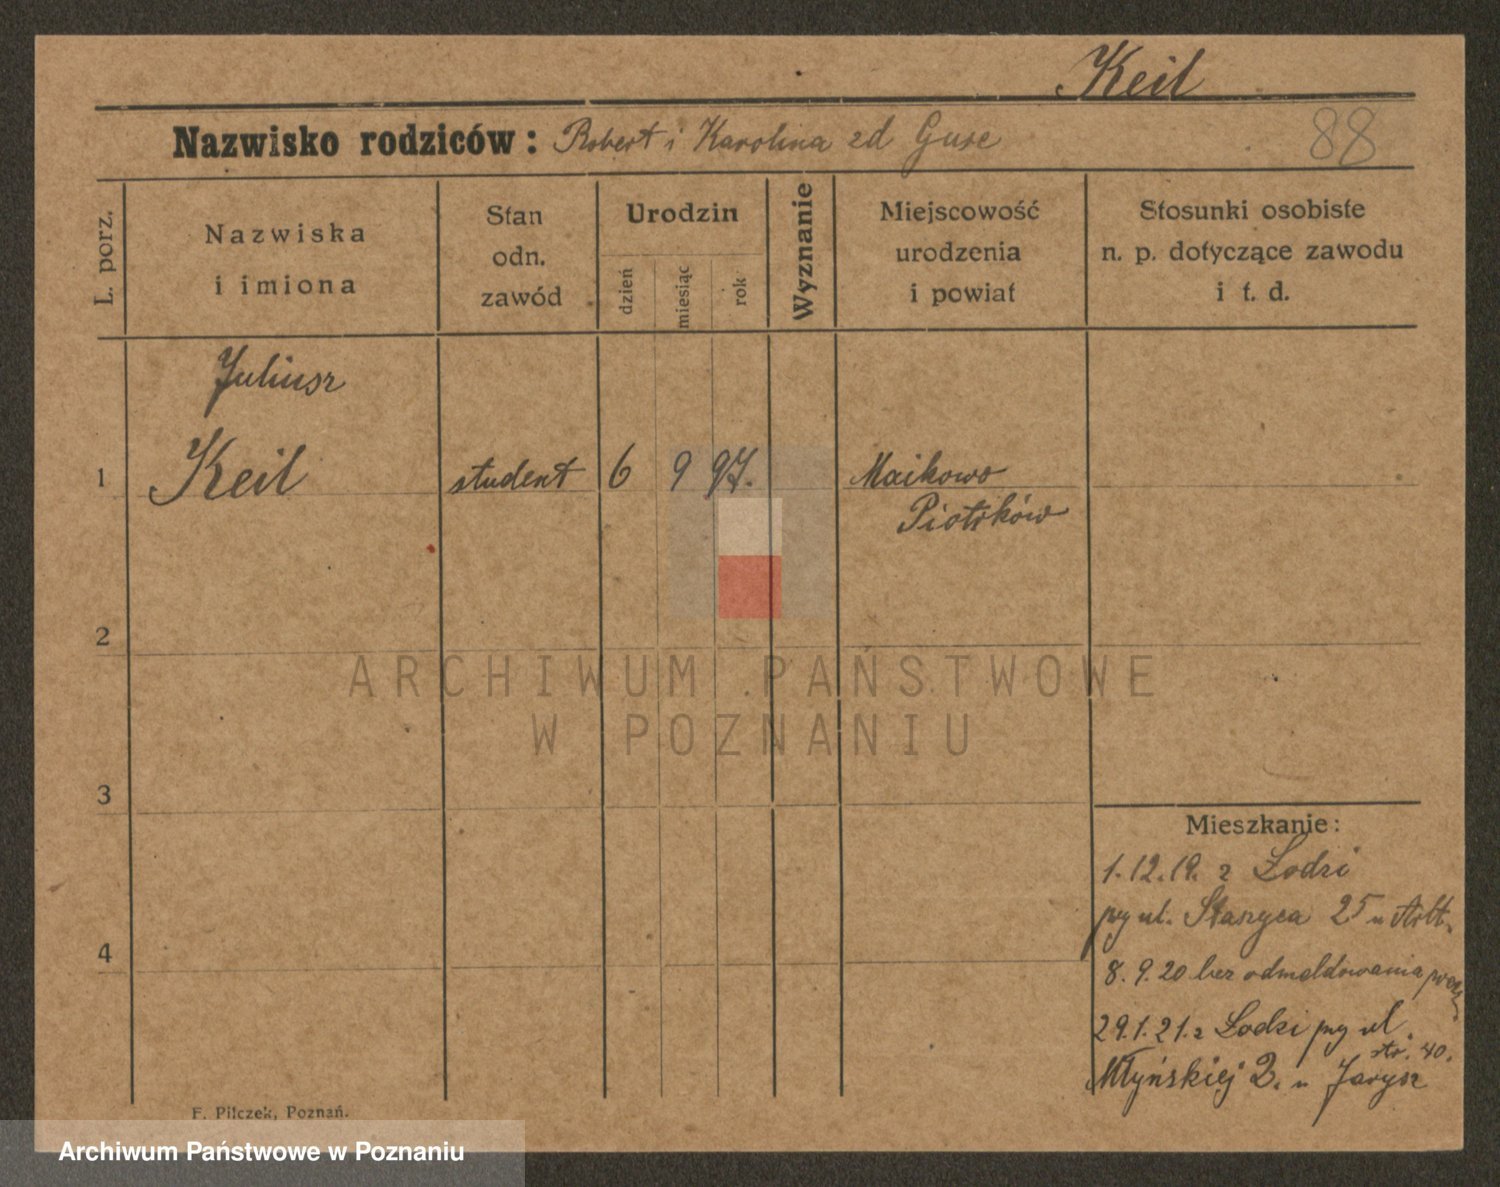 Keil
Nazwisko rodziców: Robert i Karolina zd Guse
88
L. porz.
Nazwiska
i imiona
Stan
odn.
zawód
Urodzin
dzień
miesiąc
rok
Wyznanie
Miejscowość
urodzenia
i powiat
Stosunki osobiste
n. p. dotyczące zawodu
i t. d.
Juliusz
1 Keil student 6 9 97. Maikowo
Piotrków
2
ARCHIWUM PAŃSTWOWE
W POZNANIU
3
Mieszkanie:
1.12.19. z Łodzi
py ul. Staszyca 25 u
4
8.9.20 bez odmeldowania
29.1.21. z Łodzi py ul.
str. 40.
Młyńskiej 2. u Jarysz
F. Pilczek, Poznań.
Archiwum Państwowe w Poznaniu